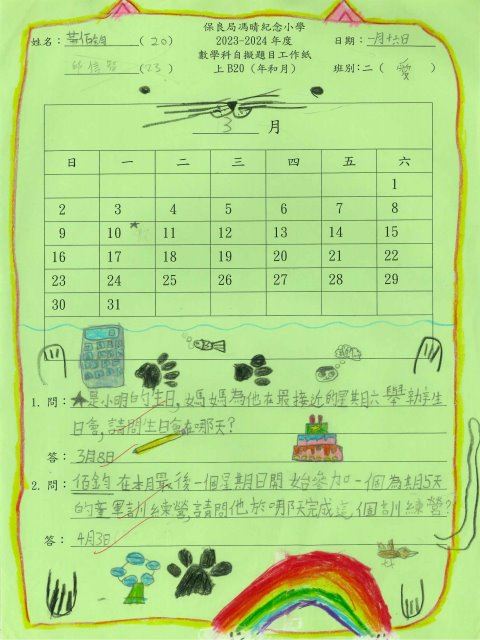 保良局馮晴紀念小學
姓名： (20) 2023-2024 年度 日期：一月十六日
(23) 數學科自擬題目工作紙
上 B20（年和月） 班別：二（愛）
3 月
日 一 二 三 四 五 六
1
2 3 4 5 6 7 8
9 10 11 12 13 14 15
16 17 18 19 20 21 22
23 24 25 26 27 28 29
30 31
1. 問：★是小明的生日，媽媽為他在最接近的星期六舉執生
日會，請問生日會在哪天？
答：3月8日
2. 問：佰鈞在本月最後一個星期日開始參加一個為期5天
的童軍訓練營，請問他於哪天完成這個訓練營？
答：4月3日